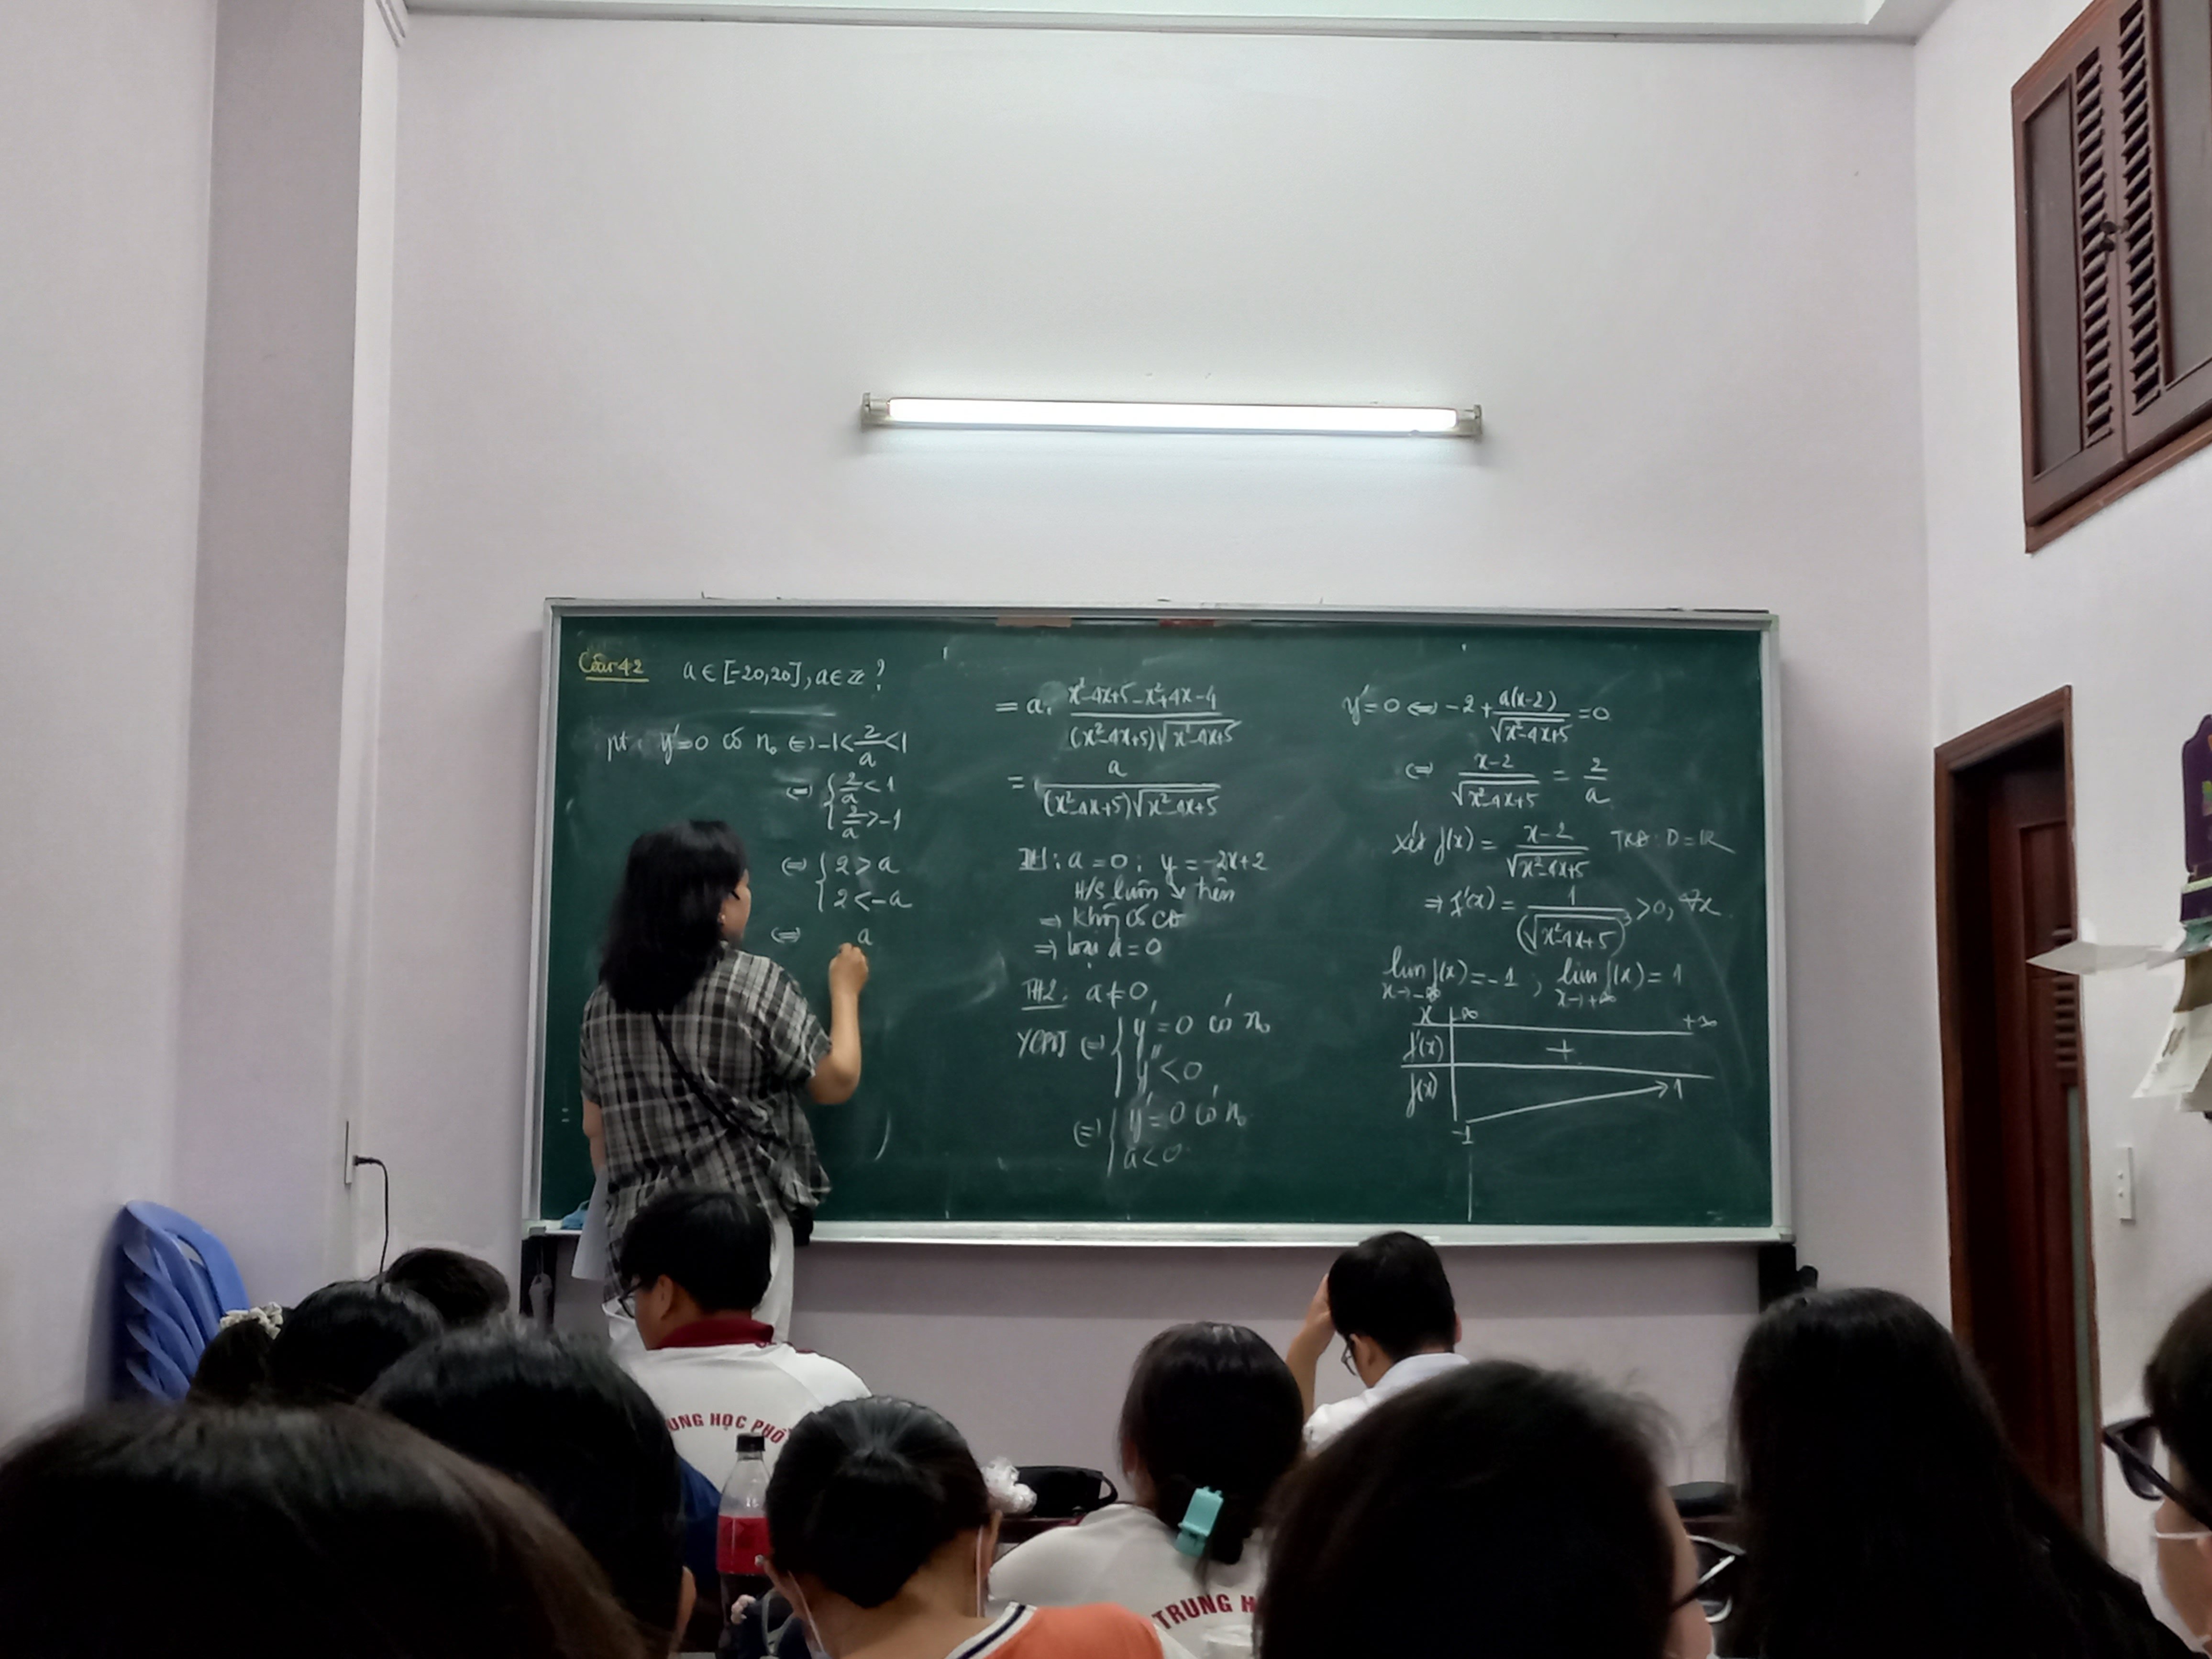 Câu 42 a ∈ [-20,20], a ∈ Z ?
pt: y' = 0 có n₀ ⇔ -1 < 2/a < 1
⇔ { 2/a < 1
2/a > -1
⇔ { 2 > a
2 < -a
⇔ a
= a. (x²-4x+5-x²+4x-4)/((x²-4x+5)√(x²-4x+5))
= a/((x²-4x+5)√(x²-4x+5))
TH1: a = 0: y = -2x+2
H/S luôn ↘ trên
⇒ Không có CĐ
⇒ loại a = 0
TH2: a ≠ 0
YCBT ⇔ { y' = 0 có n₀
y'' < 0
⇔ { y' = 0 có n₀
a < 0
y' = 0 ⇔ -2 + a(x-2)/√(x²-4x+5) = 0
⇔ (x-2)/√(x²-4x+5) = 2/a
Xét f(x) = (x-2)/√(x²-4x+5) TXĐ: D = R
⇒ f'(x) = 1/(√(x²-4x+5))³ > 0, ∀x
lim x→-∞ f(x) = -1 ; lim x→+∞ f(x) = 1
x -∞ +∞
f'(x) +
f(x) -1 → 1
UNG HỌC PHỔ
TRUNG H